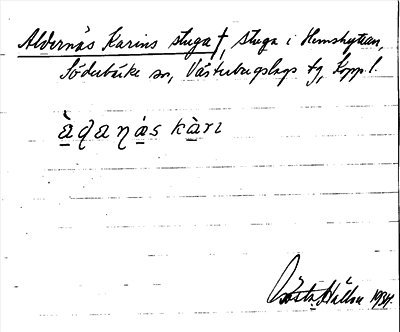 Aldernäs Karins stuga †, stuga i Hemshyttan,
Söderbärke sn, Västerbergslags tg, Kopp. l.
àḍaṇás kàrɪ
Gösta Hallén 1934.